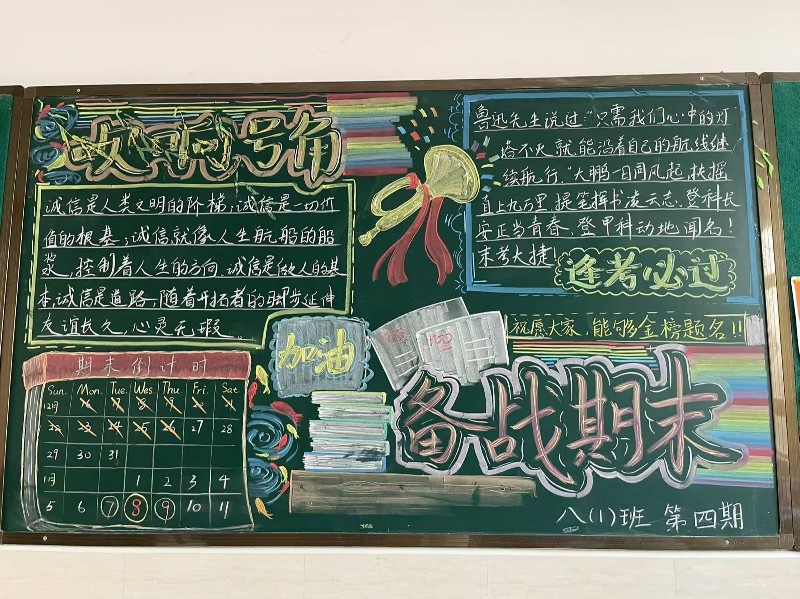 吹响号角
诚信是人类文明的阶梯;诚信是一切价
值的根基;诚信就像人生航船的船
桨,控制着人生的方向 诚信是做人的基
本,诚信是道路,随着开拓者的脚步延伸
友谊长久,心灵无瑕。
鲁迅先生说过"只需我们心中的灯
塔不火就能沿着自己的航线继
续航行。"大鹏一日同风起,扶摇
直上九万里,提笔挥书凌云志、登科长
安正当青春、登甲科动地闻名!
末考大捷!
逢考必过
祝愿大家,能够金榜题名!!
加油
100
备战期末
八(1)班 第四期
期末倒计时
Sun. Mon. Tue. Wes Thu Fri. Sat
12月
27 28
29 30 31
1月 1 2 3 4
5 6 7 8 9 10 11